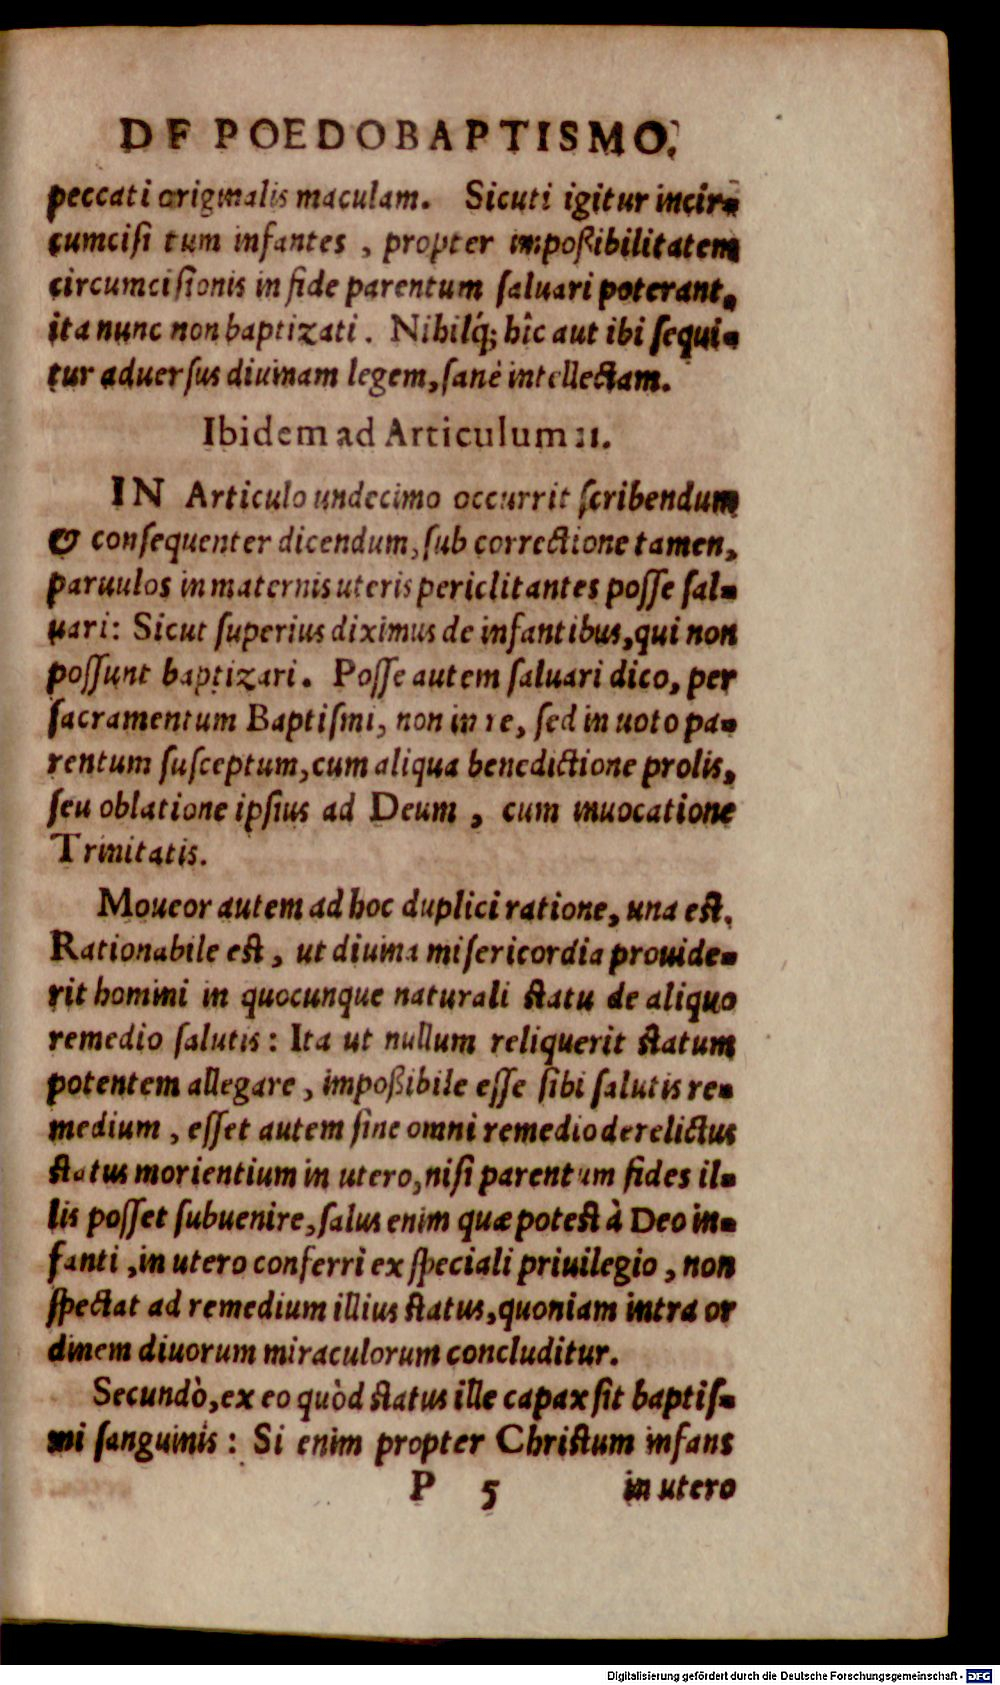 DE POEDOBAPTISMO.
peccati originalis maculam. Sicuti igitur incir-
cumcisi tum infantes, propter impoßibilitatem
circumcisionis in fide parentum saluari poterant,
ita nunc non baptizati. Nihilq́; hîc aut ibi sequi-
tur aduersus diuinam legem, sanè intellectam.
Ibidem ad Articulum 11.
IN Articulo undecimo occurrit scribendum
& consequenter dicendum, sub correctione tamen,
paruulos in maternis uteris periclitantes posse sal-
uari: Sicut superius diximus de infantibus, qui non
possunt baptizari. Posse autem saluari dico, per
sacramentum Baptismi, non in re, sed in uoto pa-
rentum susceptum, cum aliqua benedictione prolis,
seu oblatione ipsius ad Deum, cum inuocatione
Trinitatis.
Moueor autem ad hoc duplici ratione, una est.
Rationabile est, ut diuina misericordia prouide-
rit homini in quocunque naturali statu de aliquo
remedio salutis: Ita ut nullum reliquerit statum
potentem allegare, impoßibile esse sibi salutis re-
medium, esset autem sine omni remedio derelictus
status morientium in utero, nisi parentum fides il-
lis posset subuenire, salus enim quæ potest à Deo in-
fanti, in utero conferri ex speciali priuilegio, non
spectat ad remedium illius status, quoniam intra or
dinem diuorum miraculorum concluditur.
Secundò, ex eo quòd status ille capax sit baptis-
mi sanguinis: Si enim propter Christum infans
P 5 in utero
Digitalisierung gefördert durch die Deutsche Forschungsgemeinschaft - DFG